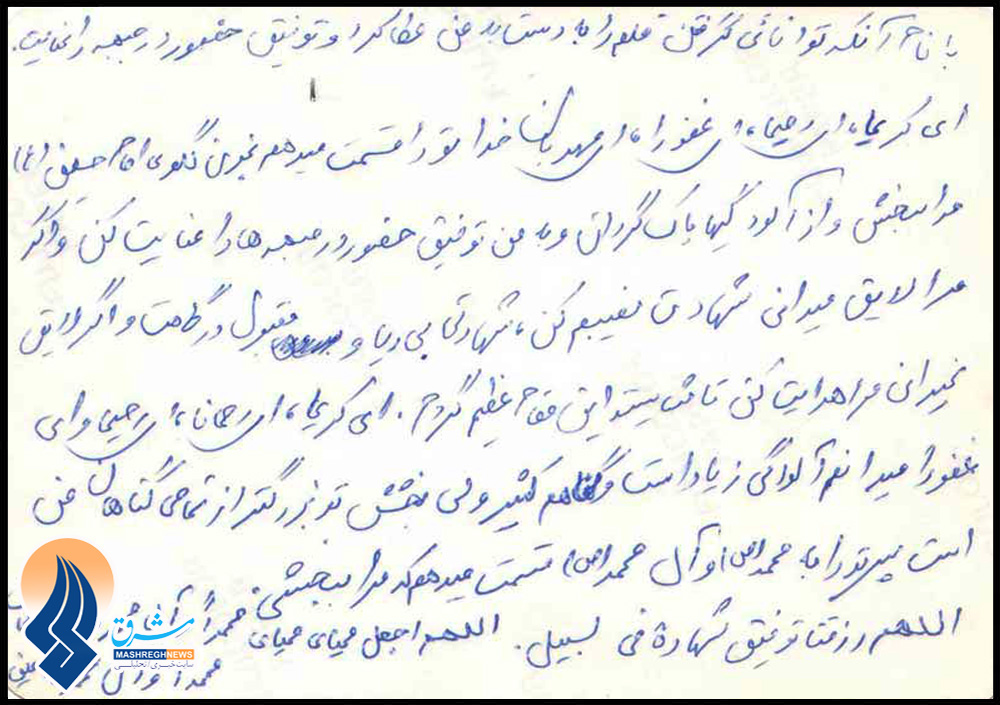 با نام آنکه توانائی گرفتن قلم را به دست به من عطا کرد و توفیق حضور در جبهه را عنایت.
ای کریما، ای رحیما، ای غفورا، ای مهربان خدا تو را قسمت میدهم بخون گلوی امام حسین (ع)
مرا ببخش و از آلودگیها پاک گردان و به من توفیق حضور در جبهه ها را عنایت کن و اگر
مرا لایق میدانی شهادت نصیبم کن، شهادتی بی ریا و مقبول درگاهت و اگر لایق
نمیدانی مرا هدایت کن تا شایسته این مقام عظیم گردم. ای کریما، ای رحمانا، ای رحیما و ای
غفورا میدانم آلودگی زیاد است و گناهم کثیر ولی بخشش تو بزرگتر از تمامی گناهان من
است پس تو را به محمد (ص) و آل محمد (ص) قسمت میدهم که مرا ببخشی.
اللهم رزقنا توفیق شهادة فی سبیل. اللهم اجعل محیای محیای محمد
محمد و آل
مشرق
MASHREGHNEWS
سایت خبری تحلیلی